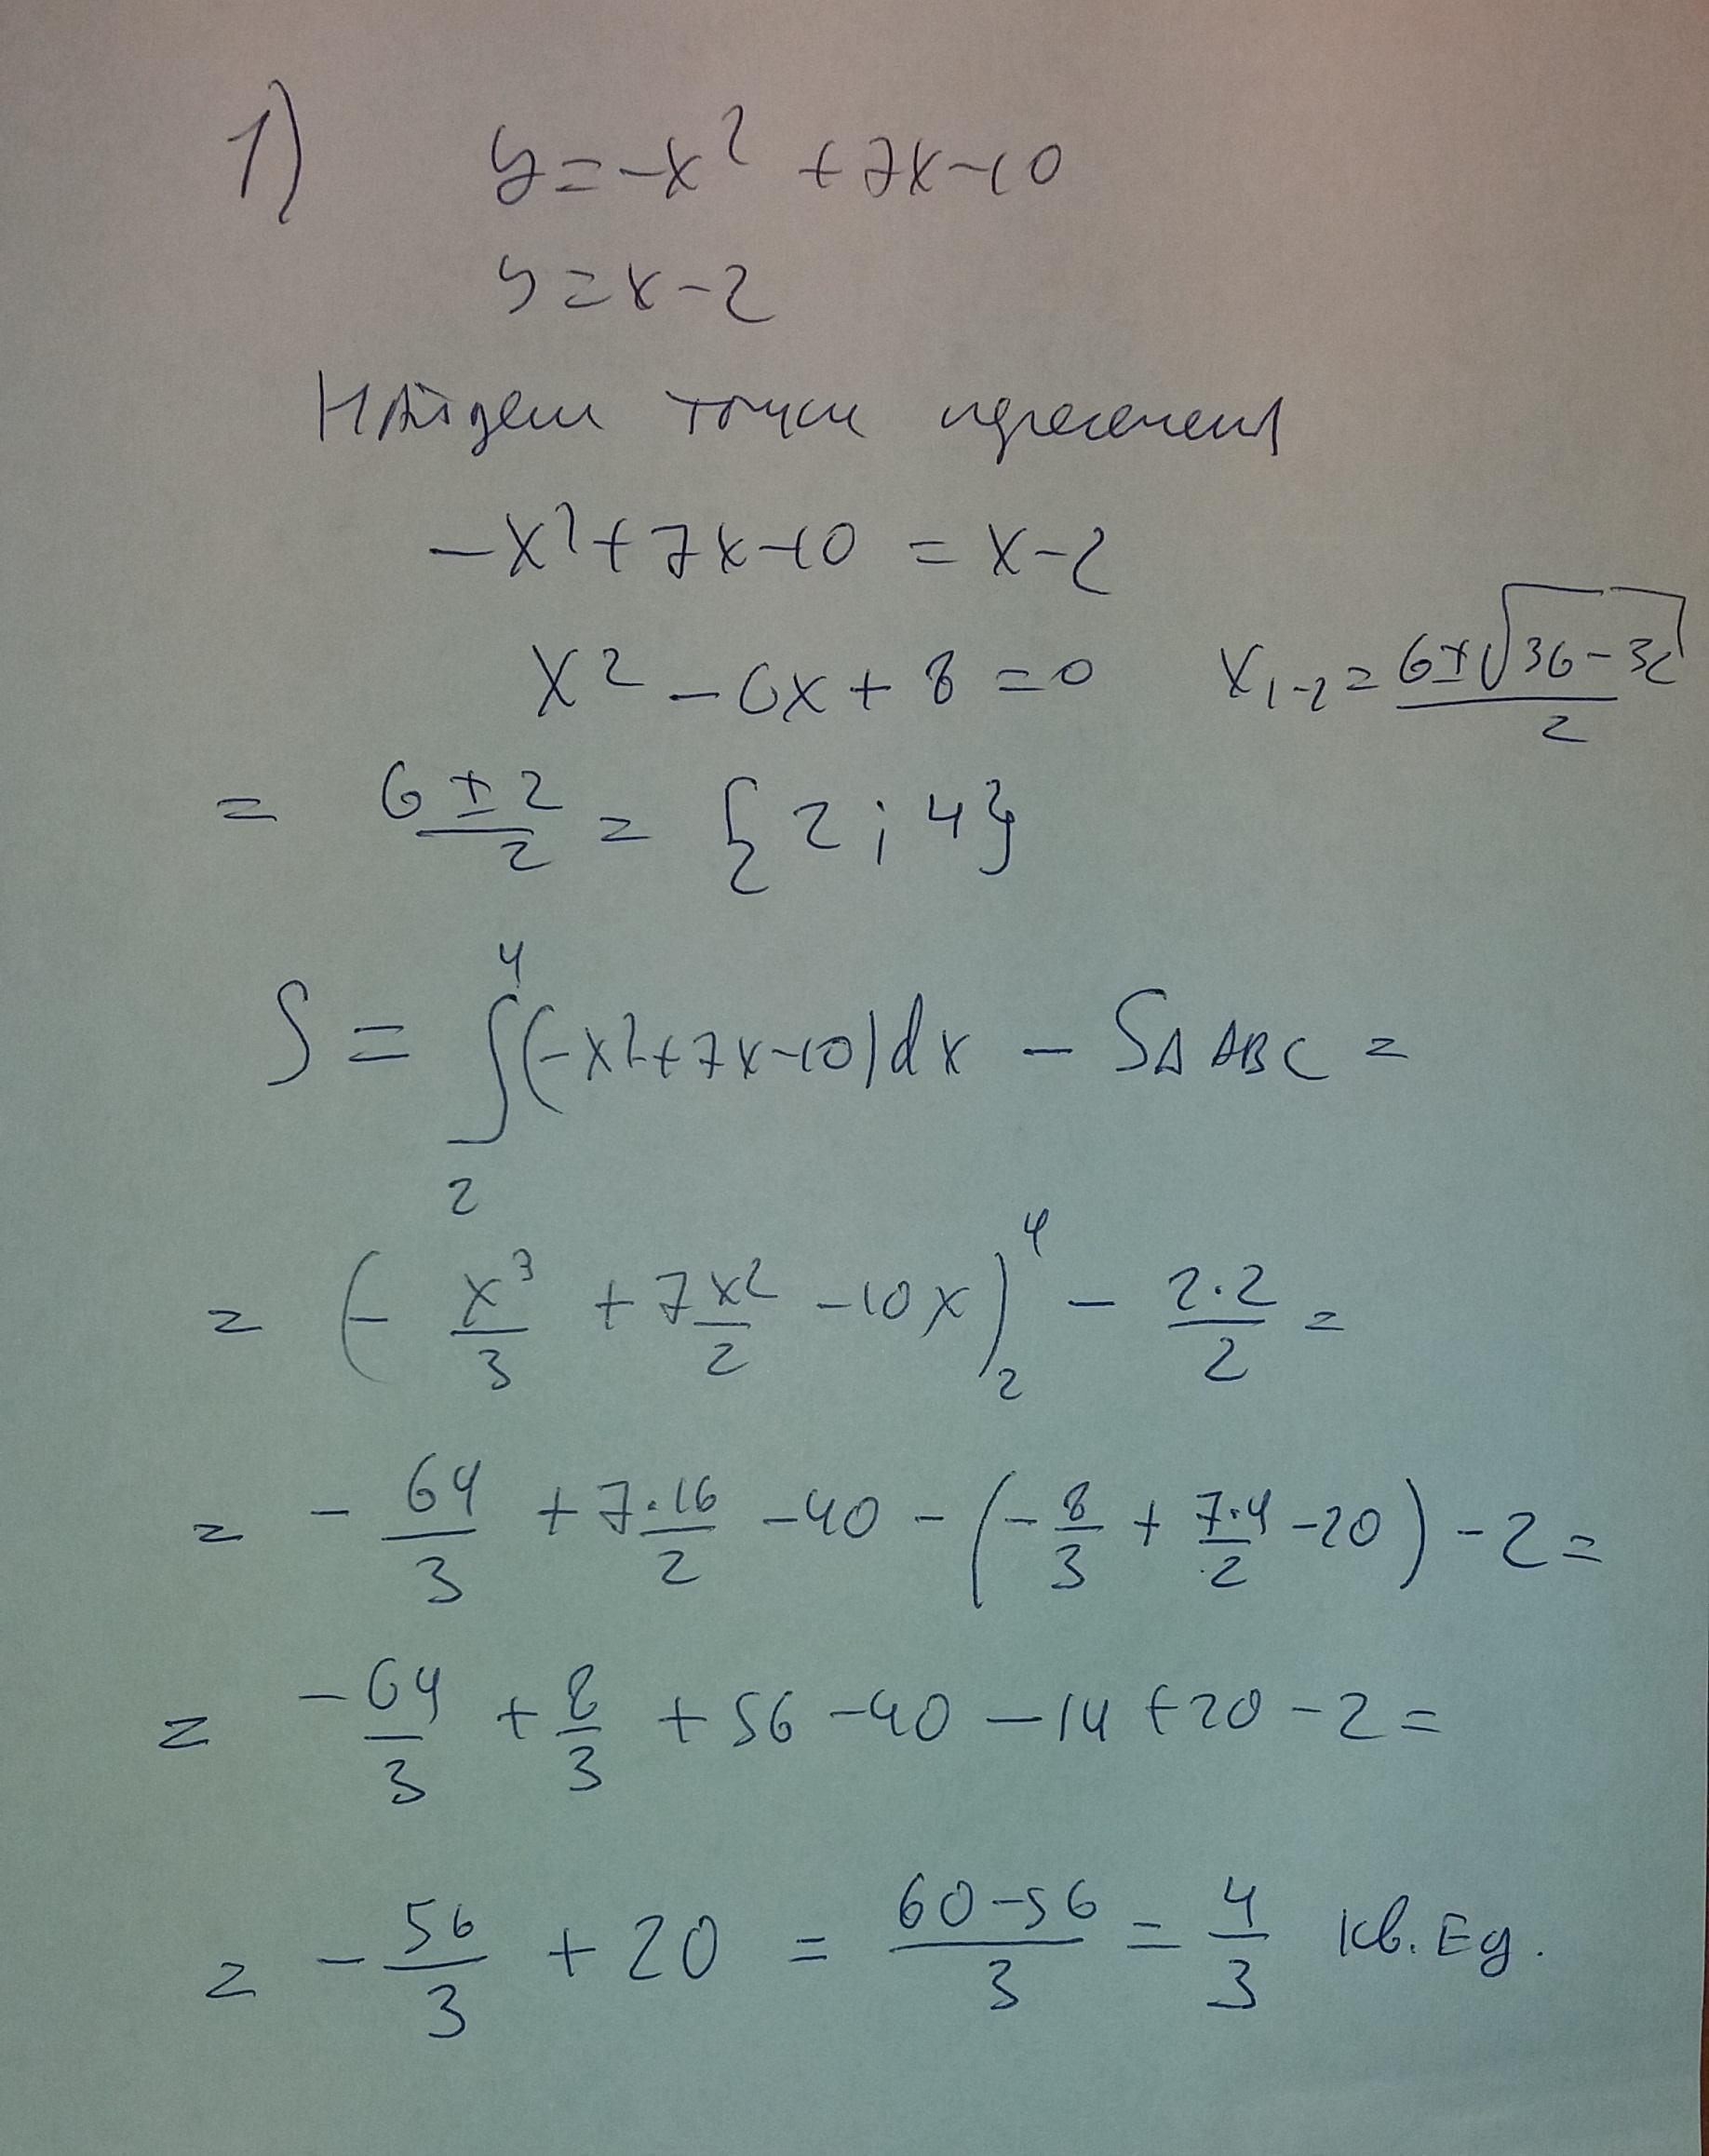 1) y = -x² + 7x - 10
y = x - 2
Найдем точки пересечения
-x² + 7x - 10 = x - 2
x² - 6x + 8 = 0 x₁₋₂ = (6 ± √(36 - 32))/2
= (6 ± 2)/2 = {2; 4}
S = ∫₂⁴ (-x² + 7x - 10) dx - S△ABC =
= (-x³/3 + 7x²/2 - 10x)₂⁴ - 2·2/2 =
= -64/3 + 7·16/2 - 40 - (-8/3 + 7·4/2 - 20) - 2 =
= -64/3 + 8/3 + 56 - 40 - 14 + 20 - 2 =
= -56/3 + 20 = (60 - 56)/3 = 4/3 кв. Ед.